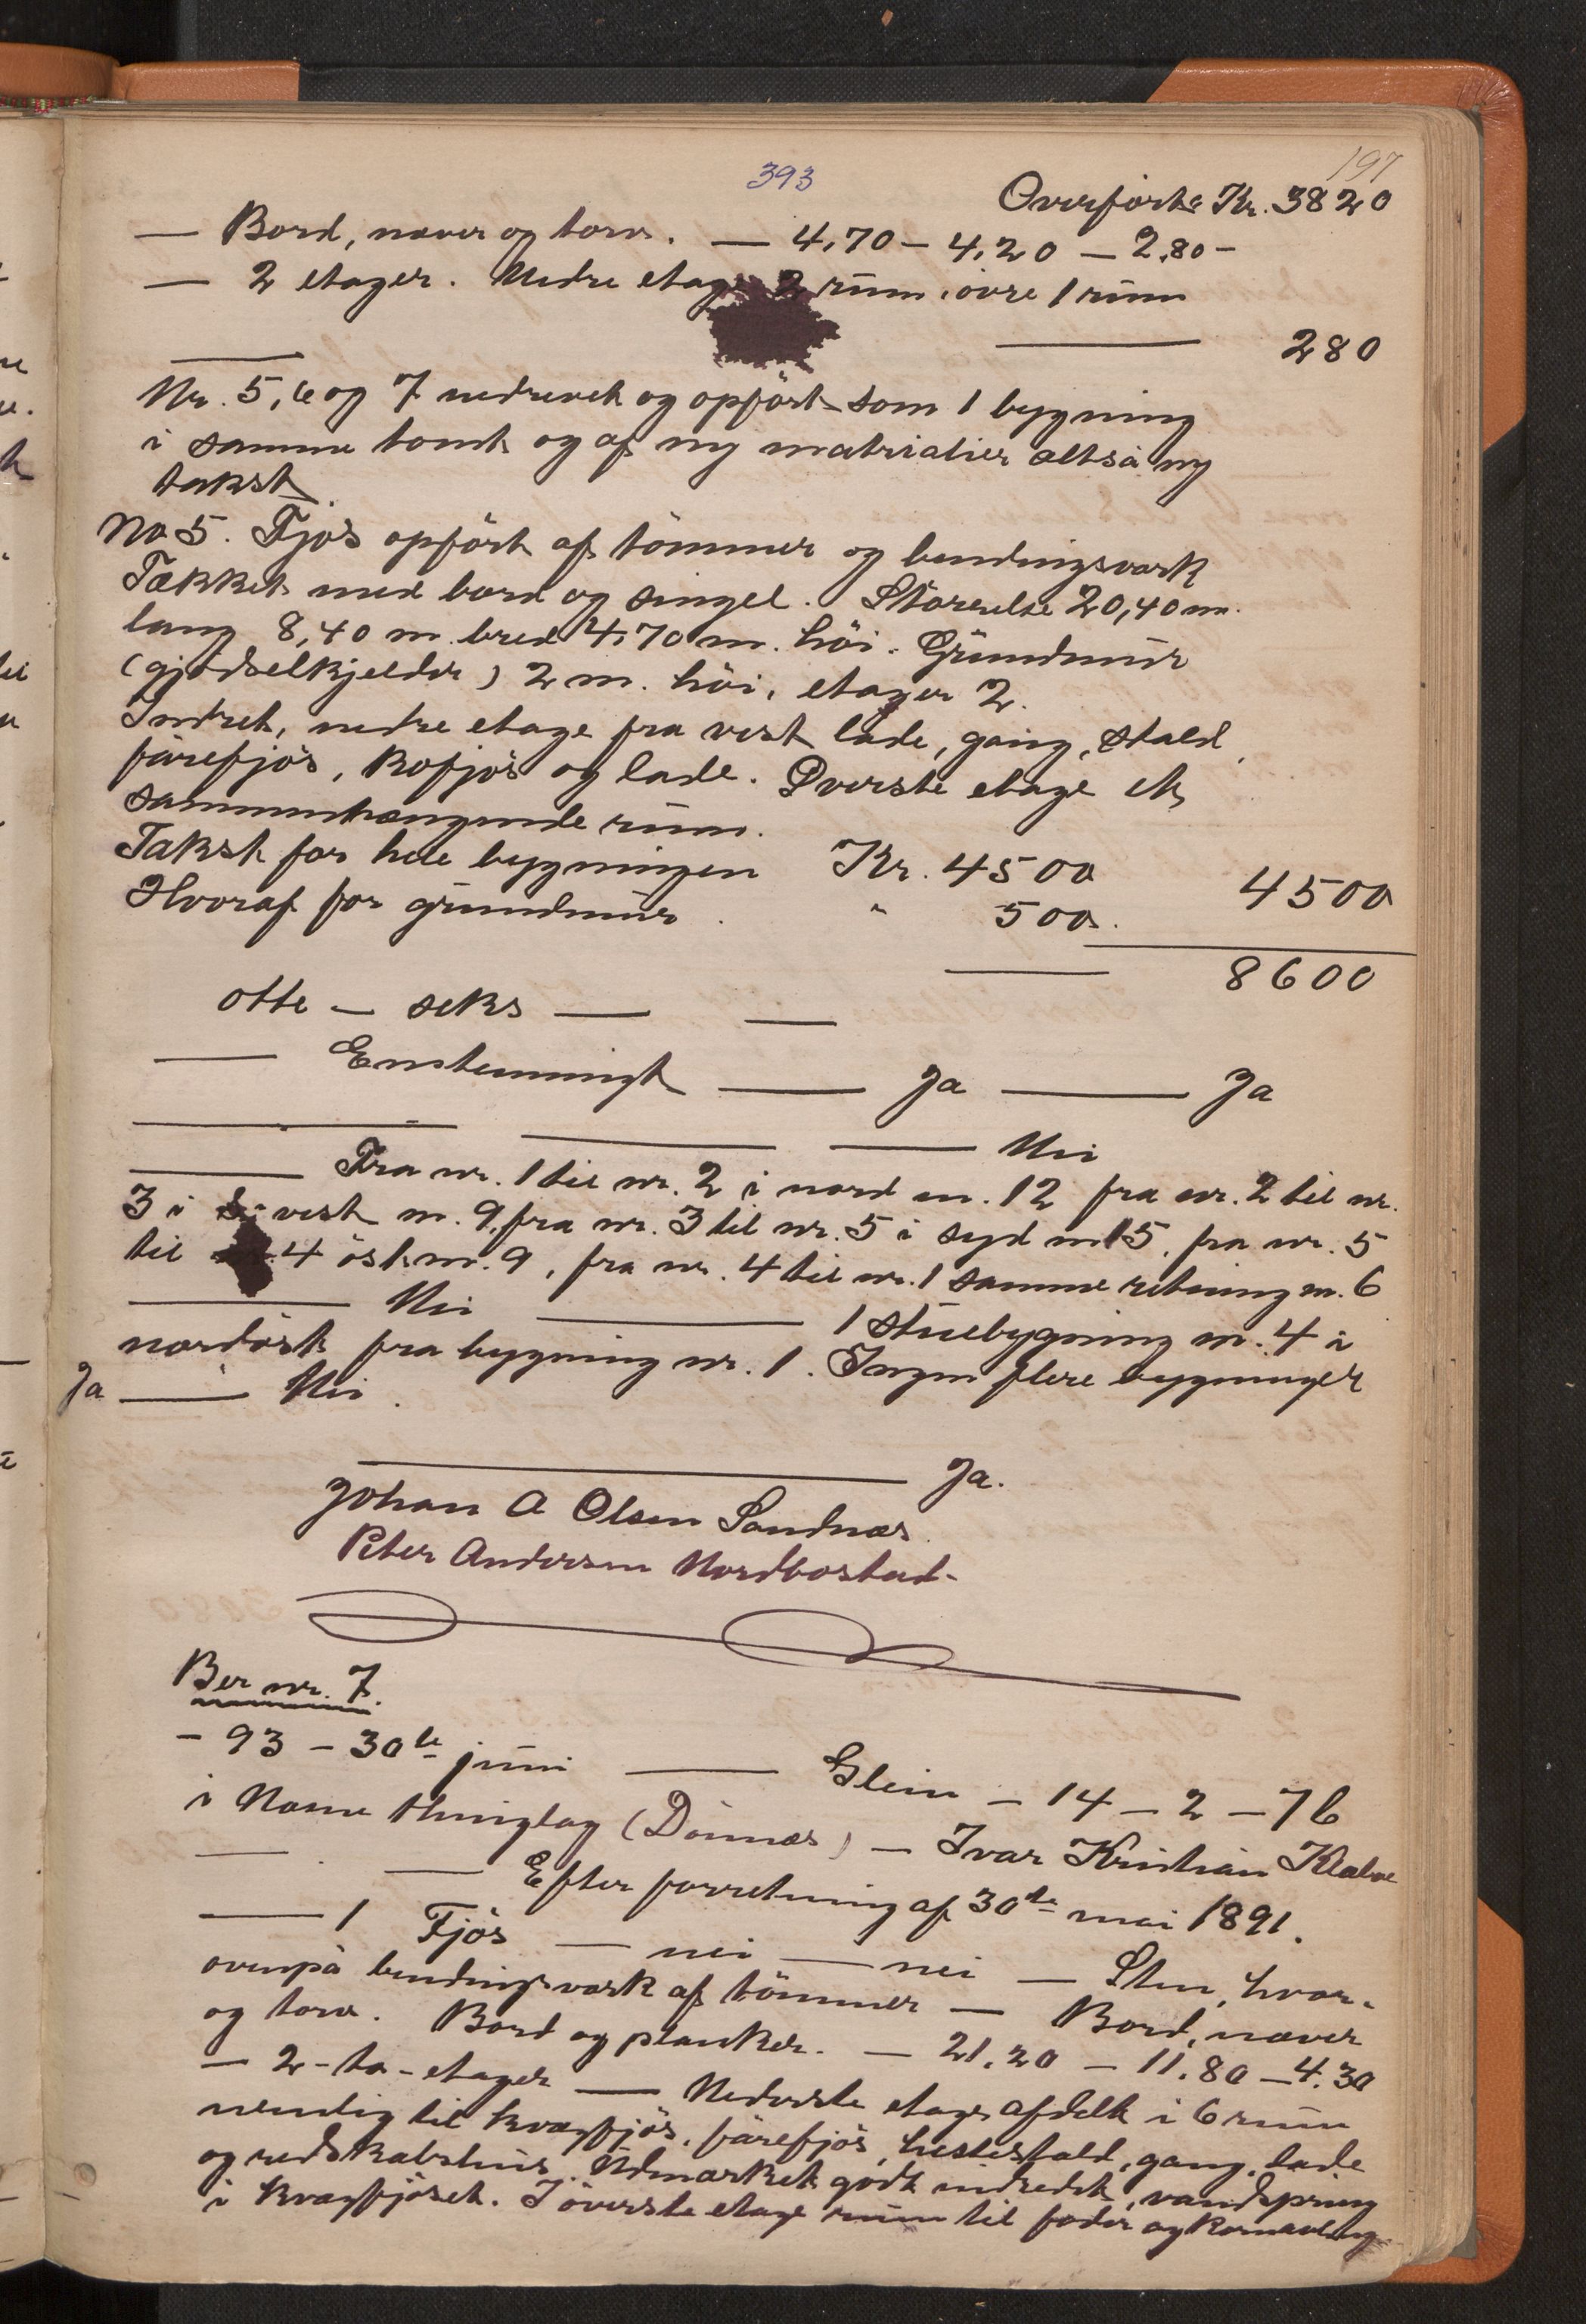 393
197
Overført Kr. 3820
— Bord, never og torv. — 4,70 — 4,20 — 2,80 —
— 2 etager. Nedre etage 2 rum, övre 1 rum
— 280
Nr. 5, 6 og 7 nedrevet og opfört som 1 bygning
i samme tomt og af ny matrialier altså ny
takst.
No 5. Fjös opfört af tömmer og bendingsverk
Tækket med bord og singel. Störrelse 20,40 m.
lang 8,40 m. bred 4,70 m. höi. Grundmür
(gjødselkjelder) 2 m. höi, etager 2.
Indret, nedre etage fra vest lade, gang, stald,
fårefjös, kofjös og lade. Øverste etage et
sammenhængende rum.
Takst for hele bygningen Kr. 4500 4500
Hvoraf for grundmür. " 500.
— 8600
otte — seks — —
— Enstemmigt — Ja — Ja
— — — Nei
— Fra nr. 1 til nr. 2 i nord m. 12 fra nr. 2 til nr.
3 i vest m. 9, fra nr. 3 til nr. 5 i syd m 15, fra nr. 5
til 4 öst m. 9, fra nr. 4 til nr. 1 samme retning m. 6
— Nei — 1 stuebygning m. 4 i
nordöst fra bygning nr. 1. Ingen flere bygninger
Ja — Nei.
— Ja.
Johan A Olsen Sandnæs
Peter Andersen Nordbostad
Ber nr. 7.
— 93 — 30te juni — Glein — 14 — 2 — 76
i Nesne thinglag (Dönnæs) — Ivar Kristian
— — Efter forretning af 30te mai 1891.
— 1 Fjös — nei — nei — Sten, hvor-
ovenpå bendingsverk af tömmer — Bord, never
og torv. Bord og planker. — 21.20 — 11.80 — 4.30
— 2 - to - etager — Nederste etage afdelt i 6 rum
nemlig til kvægfjös, fårefjös, hestestald, gang, lade
og redskabshus. Udmærket godt indredet, vandspring
i kvægfjöset. I överste etage rum til foder og kornavling